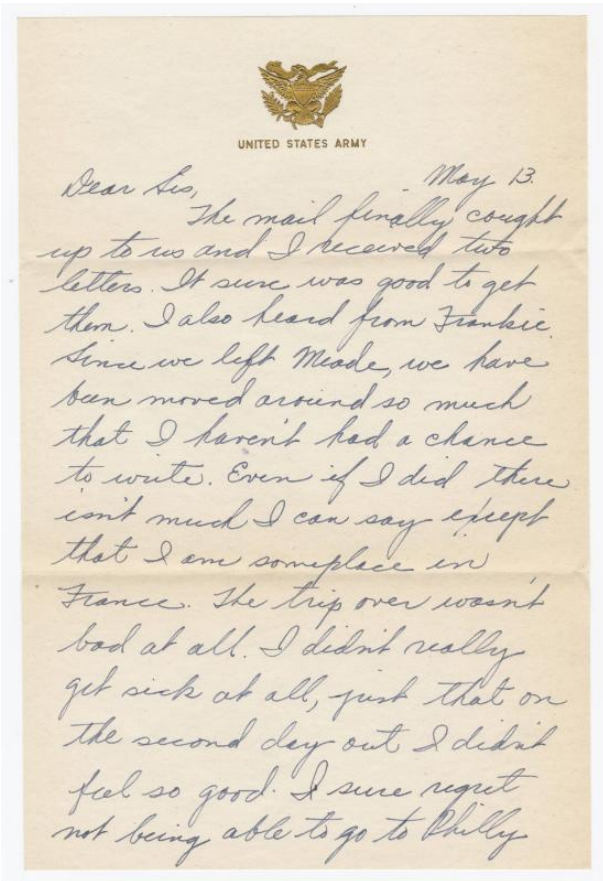 UNITED STATES ARMY
May 13.
Dear Sis,
The mail finally cought
up to us and I received two
letters. It sure was good to get
them. I also heard from Frankie.
Since we left Meade, we have
been moved around so much
that I haven't had a chance
to write. Even if I did there
isn't much I can say except
that I am someplace in
France. The trip over wasn't
bad at all. I didn't really
get sick at all, just that on
the second day out I didn't
feel so good. I sure regret
not being able to go to Philly